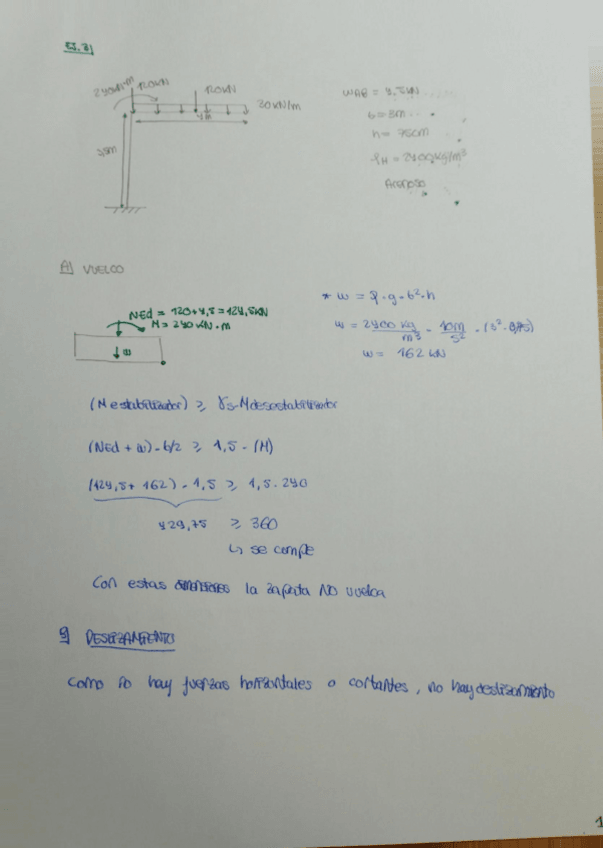 EJ. 3)
240kN·m 120kN 120kN
30 kN/m
4m
3,5m
WAB = 4,5kN
b = 3m
h = 75cm
ρH = 2400kg/m³
Arenoso
A) VUELCO
NEd = 120+4,5 = 124,5kN
M = 240 kN·m
w
* w = ρ·g·b²·h
w = 2400 kg/m³ · 10m/s² · (3²·0,75)
w = 162 kN
(M estabilizador) ≥ γs·Mdesestabilizador
(NEd + w)·b/2 ≥ 1,5·(M)
(124,5+ 162)·1,5 ≥ 1,5·240
429,75 ≥ 360
↳ se compe
Con estas dimensiones la zapata NO vuelca
DESLIZAMIENTO
Como no hay fuerzas horizontales o cortantes, no hay deslizamiento
1